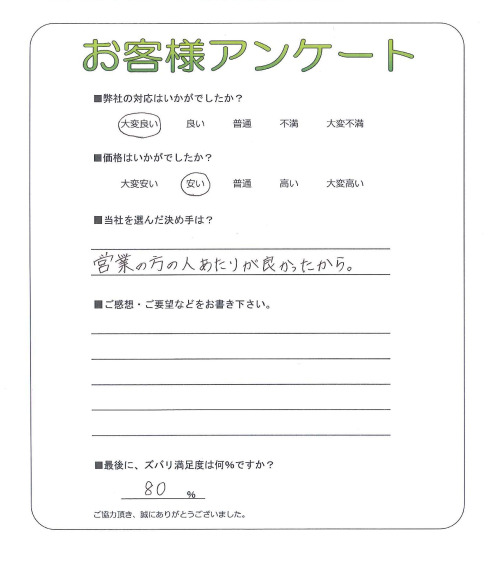 お客様アンケート
■弊社の対応はいかがでしたか？
大変良い 良い 普通 不満 大変不満
■価格はいかがでしたか？
大変安い 安い 普通 高い 大変高い
■当社を選んだ決め手は？
営業の方の人あたりが良かったから。
■ご感想・ご要望などをお書き下さい。
■最後に、ズバリ満足度は何%ですか？
80 %
ご協力頂き、誠にありがとうございました。